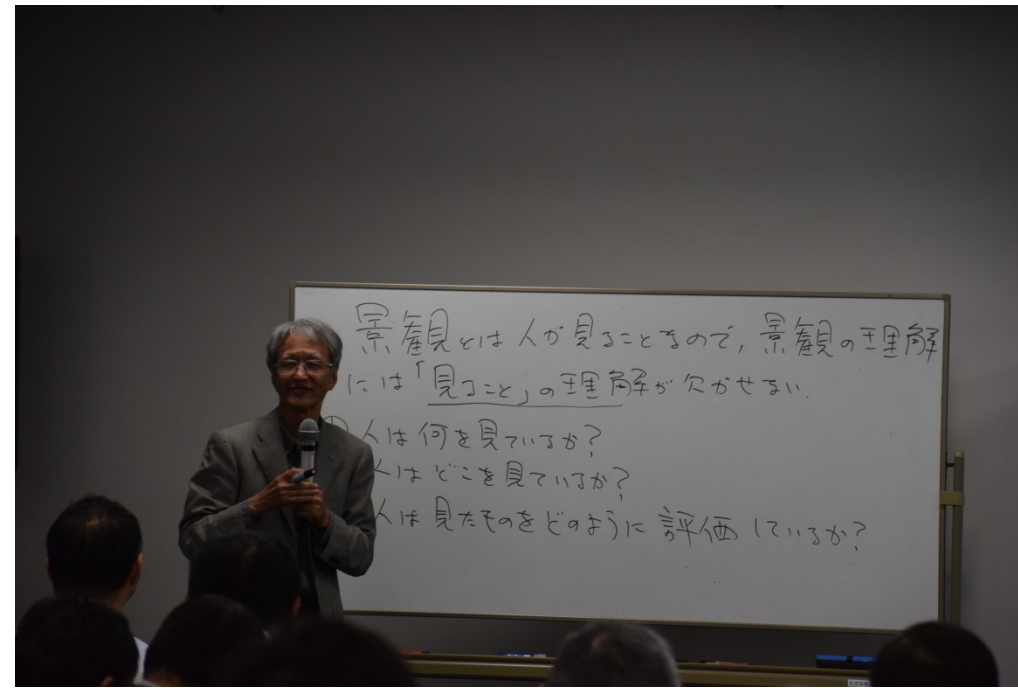 景観とは人が見ることなので，景観の理解
には「見ること」の理解が欠かせない．
①人は何を見ているか？
人はどこを見ているか？
人は見たものをどのように評価しているか？